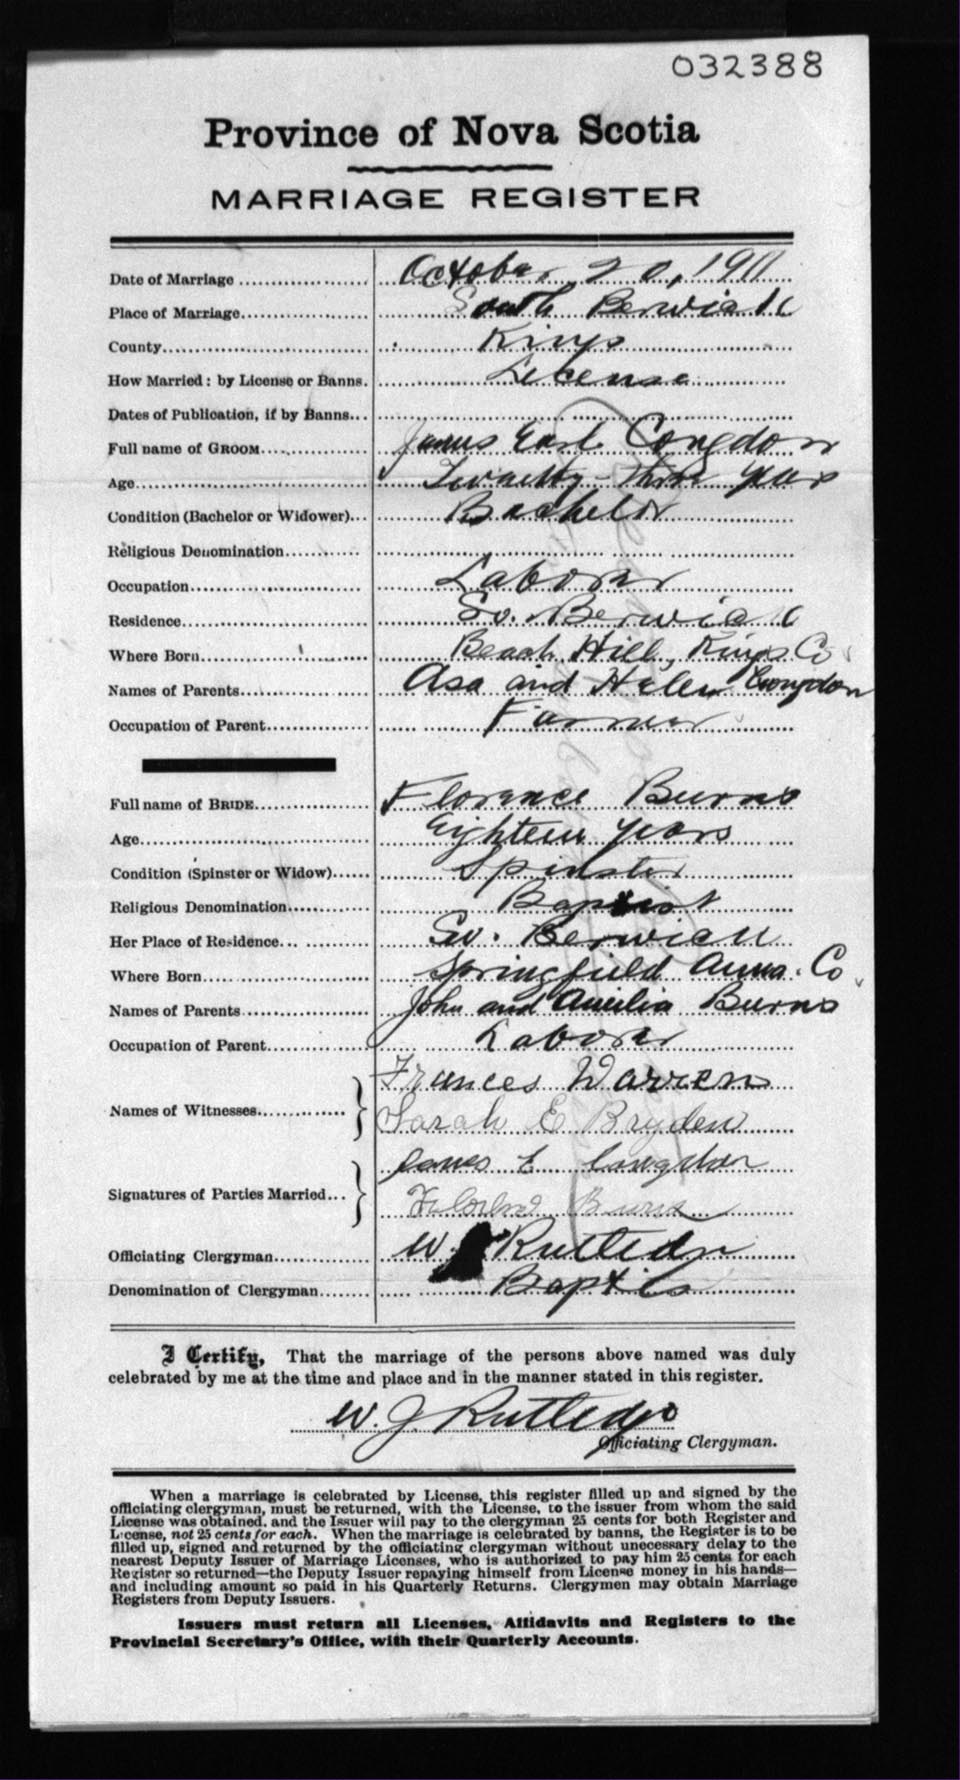 032388
Province of Nova Scotia
MARRIAGE REGISTER
Date of Marriage October 20, 1911
Place of Marriage South Berwick
County Kings
How Married: by License or Banns. License
Dates of Publication, if by Banns...
Full name of GROOM James Earl Congdon
Age Twenty-three years
Condition (Bachelor or Widower) Bachelor
Religious Denomination
Occupation Laborer
Residence So. Berwick
Where Born Beach Hill, Kings Co
Names of Parents Asa and Helen Congdon
Occupation of Parent Farmer
Full name of BRIDE Florence Burns
Age Eighteen years
Condition (Spinster or Widow) Spinster
Religious Denomination Baptist
Her Place of Residence So. Berwick
Where Born Springfield Anna. Co
Names of Parents John and Amelia Burns
Occupation of Parent Laborer
Names of Witnesses Frances Warren
Sarah E Bryden
Signatures of Parties Married James E Congdon
Burns
Officiating Clergyman W Rutledge
Denomination of Clergyman Baptist
I Certify, That the marriage of the persons above named was duly
celebrated by me at the time and place and in the manner stated in this register.
W. J. Rutledge
Officiating Clergyman.
When a marriage is celebrated by License, this register filled up and signed by the
officiating clergyman, must be returned, with the License, to the issuer from whom the said
License was obtained, and the Issuer will pay to the clergyman 25 cents for both Register and
License, not 25 cents for each. When the marriage is celebrated by banns, the Register is to be
filled up, signed and returned by the officiating clergyman without unecessary delay to the
nearest Deputy Issuer of Marriage Licenses, who is authorized to pay him 25 cents for each
Register so returned—the Deputy Issuer repaying himself from License money in his hands—
and including amount so paid in his Quarterly Returns. Clergymen may obtain Marriage
Registers from Deputy Issuers.
Issuers must return all Licenses, Affidavits and Registers to the
Provincial Secretary's Office, with their Quarterly Accounts.